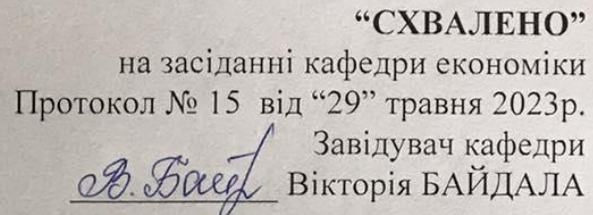 “СХВАЛЕНО”
на засіданні кафедри економіки
Протокол № 15 від “29” травня 2023р.
Завідувач кафедри
Вікторія БАЙДАЛА